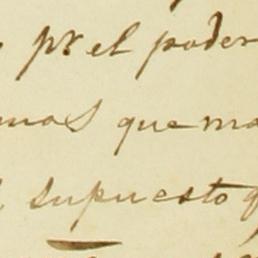 pr. el poder
que ma
supuesto q